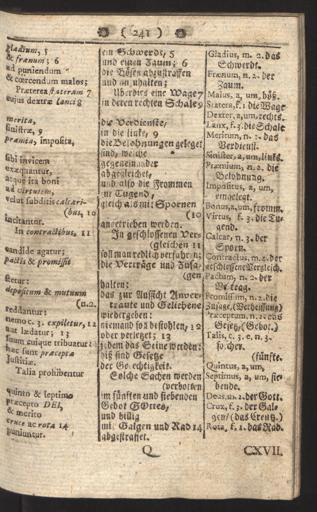 ( 241 )
gladium, 5
& frænum; 6
ad puniendum
& coercendum malos;
Præterea stateram 7
cujus dextræ lanci 8
merita,
sinistræ, 9
præmia, imposita,
sibi invicem
exæquantur,
atque ita boni
ad virtutem,
velut subditis calcari-
(bus, 10
incitantur.
In contractibus, 11
candidè agatur;
pactis & promissis
stetur:
depositum & mutuum
(n.2.
reddantur:
nemo c. 3. expiletur, 12
aut lædatur; 13
suum cuique tribuatur:
hæc sunt præcepta
Justitiæ.
Talia prohibentur
quinto & septimo
præcepto DEI,
& merito
cruce ac rota 14
puniuntur.
ein Schwerdt, 5
und einen Zaum; 6
die Bösen abzustraffen
und an uhalten:
Uberdeß eine Wage 7
in deren rechten Schale 8
die Verdienste,
in die linke, 9
die Belohnungen geleget
sind, welche
gegeneinander
abgegleichet,
und also die Frommen
zur Tugend,
gleich als mit Spornen
(10
angetrieben werden.
In geschlossenen Ver-
(gleichen 11
soll man redlich verfahren;
die Verträge und Zusa-
(gen
halten:
das zur Aufsicht Anver-
traute und Geliehene
wiedergeben:
niemand sol bestohlen, 12
oder verletzet; 13
jedem das Seine werden:
diß sind Gesetze
der Gerechtigkeit.
Solche Sachen werden
(verboten
im fünften und siebenden
Gebot GOttes,
und billig
mit Galgen und Rad 14
abgestraffet.
Gladius, m. 2. das
Schwerdt.
Frænum, n. 2. der
Zaum.
Malus, a, um, böß.
Statera, f. 1 die Wage
Dexter, a, um, rechts.
Lanx, f. 3. die Schale
Meritum, n. 2. das
Verdienst.
Sinister, a, um, links.
Præmium, n. 2. die
Belohnung.
Impositus, a, um,
eingelegt.
Bonus, a, um, fromm.
Virtus, f. 3. die Tu-
gend.
Calcar, n. 3. der
Sporn.
Contractus, m. 4. der
geschlossene Vergleich.
Pactum, n. 2. der
Vertrag.
Promissum, n. 2. die
Zusage, (Verheissung)
Præceptum, n. 2. das
Gesetz, (Gebot.)
Talis, c. 3. e, n. 3.
solcher.
(fünfte.
Quintus, a, um,
Septimus, a, um, sie-
bende.
Deus, m. 2. der Gott.
Crux, f. 3. der Gal-
gen/ (das Creutz.)
Rota, f. 1. das Rad.
Q
CXVII.